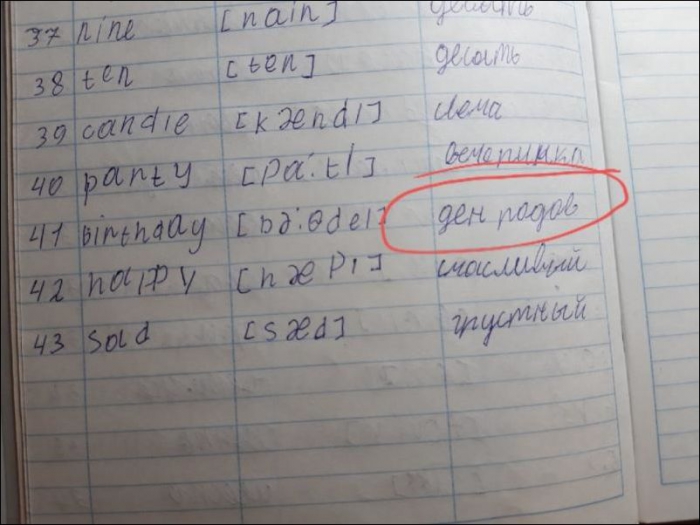 37 nine [nain] десять
38 ten [ten] десать
39 candle [kændl] свеча
40 party [pa:tI] вечеринка
41 Birthday [bə:θdeI] ден родов
42 happy [hæpI] счасливый
43 sad [sæd] грустный